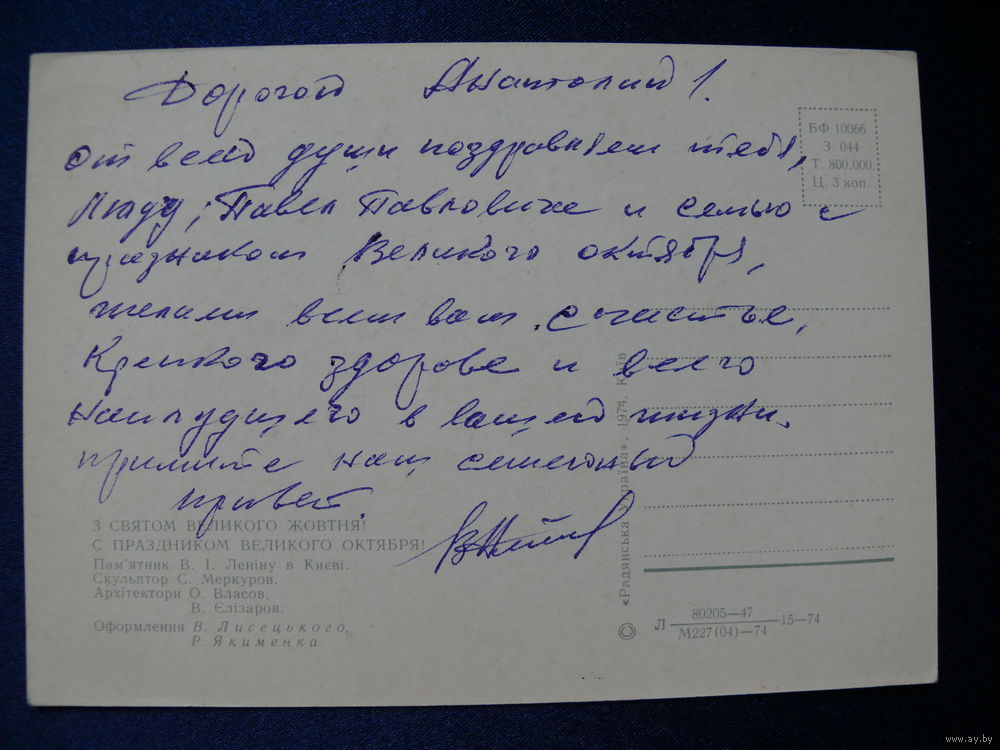 Дорогой Анатолий!
От всей души поздравляем тебя,
Люду, Павел Павловиче и семью с
праздником Великого октября,
желаем всем вам счастье,
Крепкого здорове и всего
наилудщего в вашей жизни.
примите наш семейный
привет.
БФ 10066
З. 044
Т. 800.000.
Ц. 3 коп.
З СВЯТОМ ВЕЛИКОГО ЖОВТНЯ!
С ПРАЗДНИКОМ ВЕЛИКОГО ОКТЯБРЯ!
Пам'ятник В. І. Леніну в Києві.
Скульптор С. Меркуров.
Архітектори О. Власов,
В. Єлізаров.
Оформлення В. Лисецького,
Р. Якименка
© «Радянська Україна», 1974. Київ
Л 80205—47
М227(04)—74 —15—74
www.ay.by